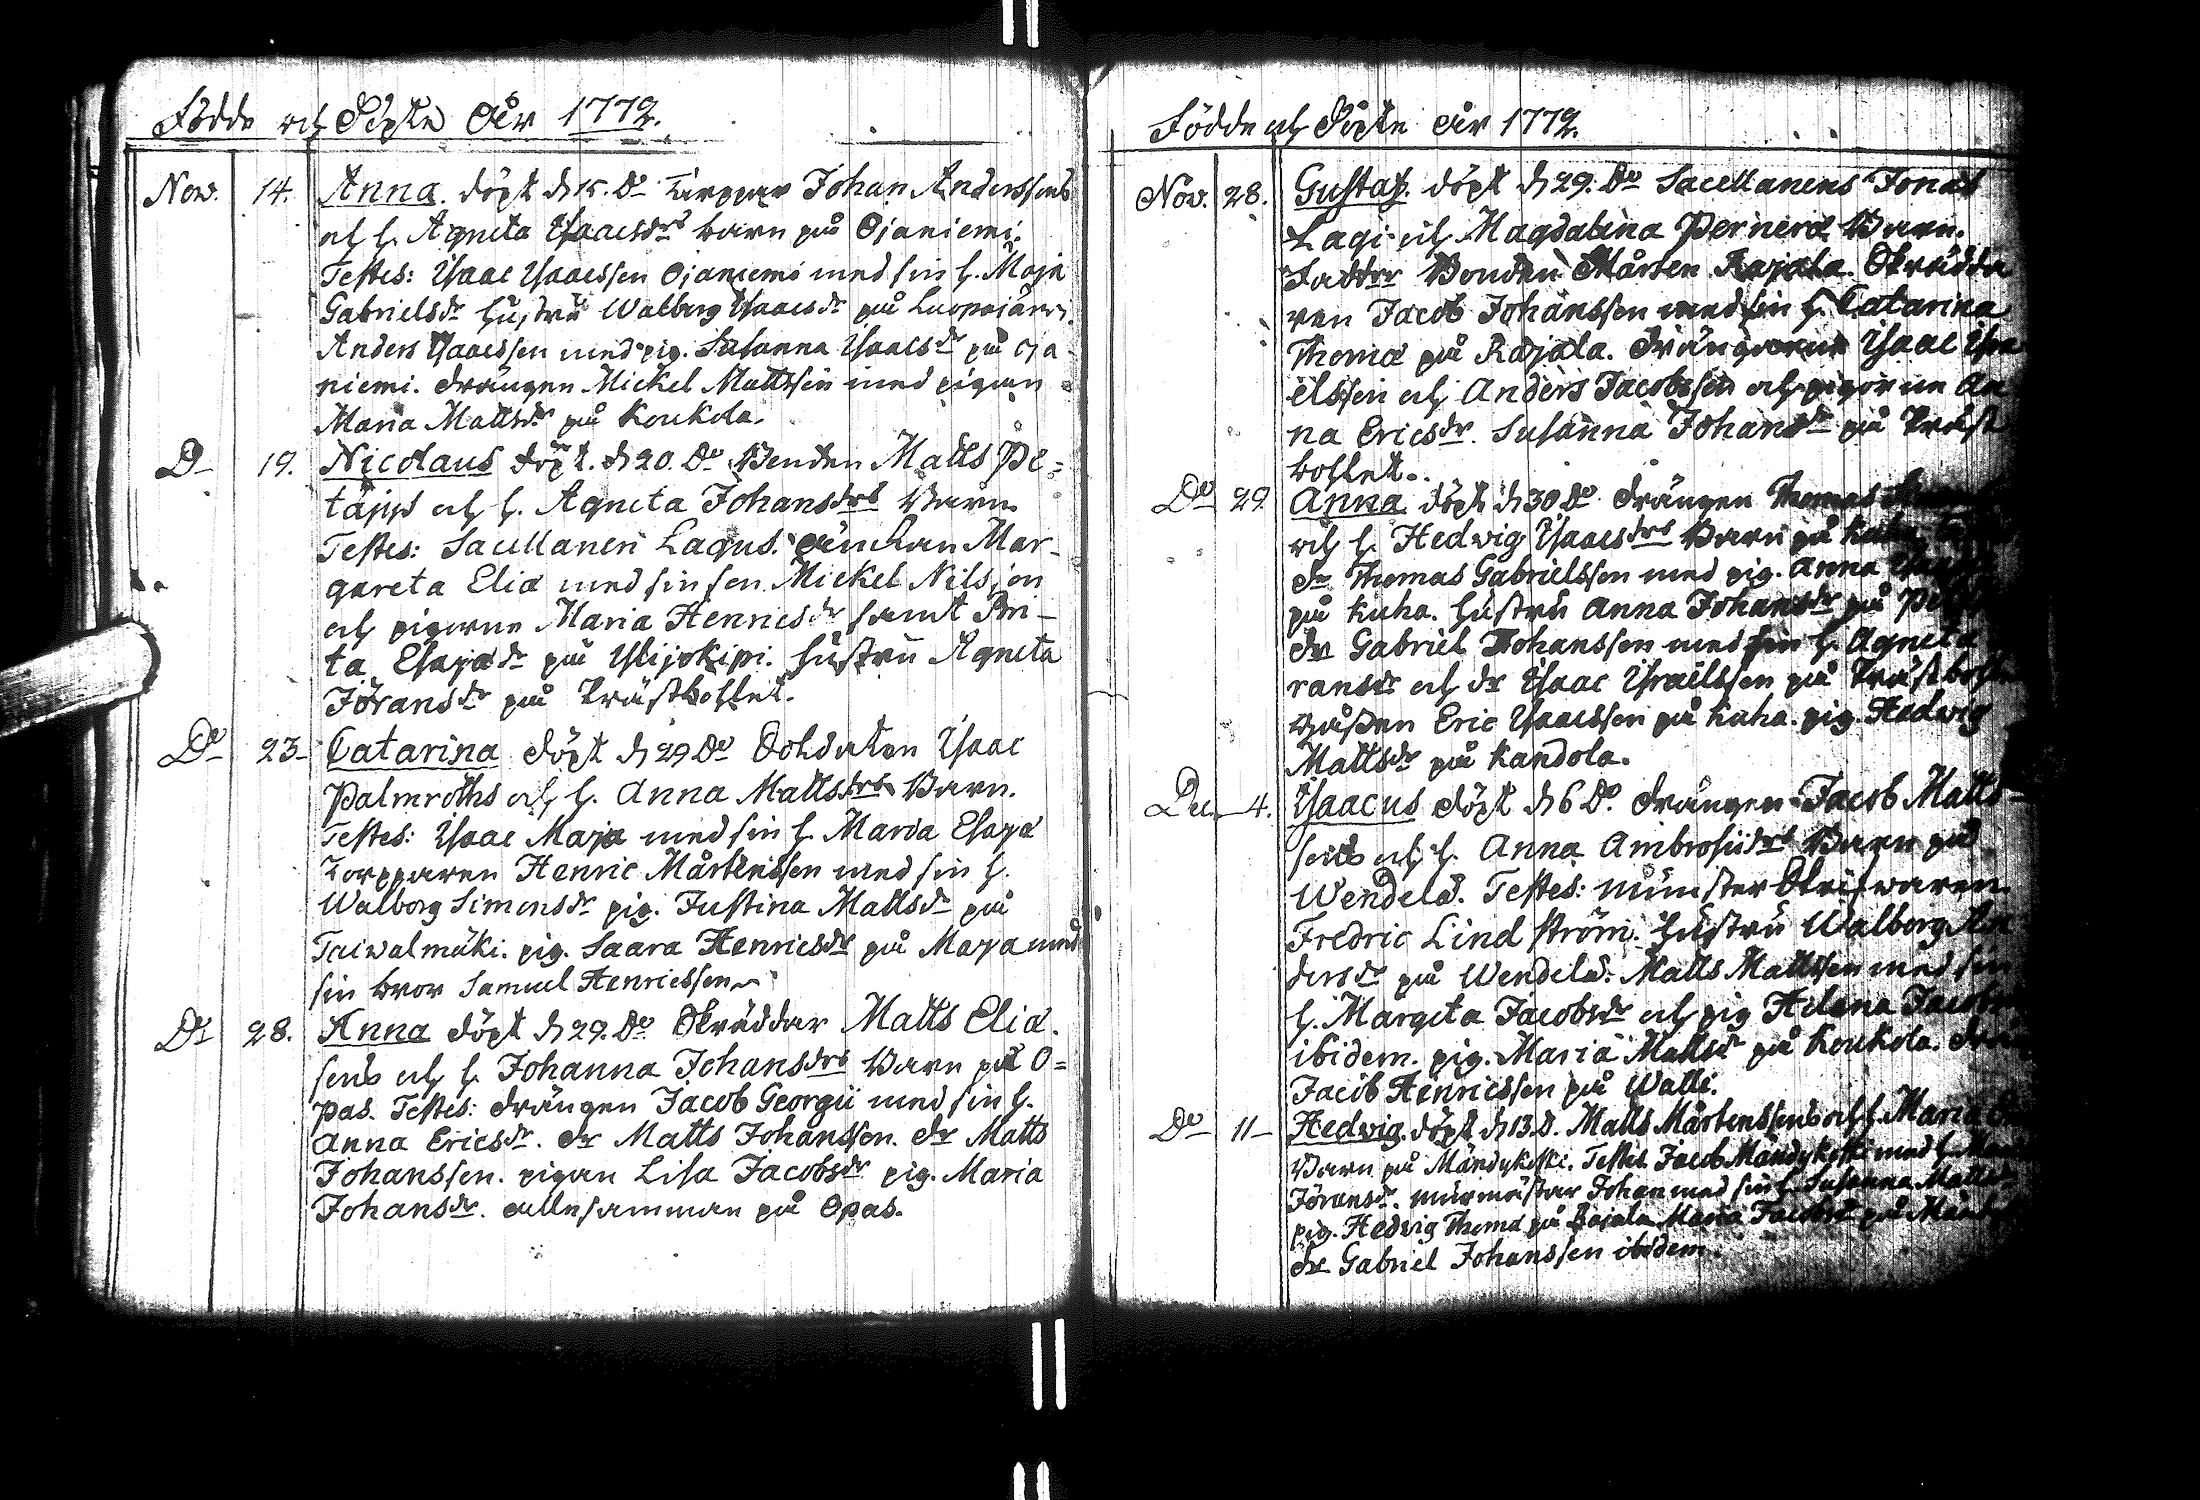 Födde och Döpte Åhr 1772.
Nov. 14. Anna. döpt d. 15. Do Torppar Johan Anderssens
och h. Agneta Isaacsdrs barn på Ojaniemi.
Testes: Isaac Isaacssen Ojaniemi med sin h. Maja
Gabrielsdr hustru Walborg Isaacsdr på
Anders Isaacssen med pig. Susanna Isaacsdr på Oja-
niemi. drängen Mickel Mattssen med pigan
Maria Mattsdr på Koukola.
D— 19. Nicolaus döpt. d. 20. Do Bonden Matts Pe=
täjys och h. Agneta Johansdrs Barn
Testes: Sacellanen Lagus. änckan Mar-
gareta Eliæ med sin son Mickel Nilsson
och pigorna Maria Henricsdr samt Bri-
ta Esajædr på Ylijokipi. hustru Agneta
Jöransdr på Prästbohlet.
Do 23— Catarina döpt d. 29 Do Soldaten Isaac
Palmroths och h. Anna Mattsdrs Barn.
Testes: Isaac Maja med sin h. Maria Esajæ
Torpparen Henric Mårtenssen med sin h.
Walborg Simonsdr pig. Justina Mattsdr på
Taiwalmäki. pig. Saara Henricsdr på Maja med
sin bror Samuel Henricssen
Do 28. Anna döpt d. 29. Do Skräddar Matts Eliæ.
sens och h. Johanna Johansdrs Barn på O=
pas. Testes: drängen Jacob Georgii med sin h.
Anna Ericsdr. dr Matts Johanssen. dr Matts
Johanssen. pigan Lisa Jacobsdr pig. Maria
Johansdr. allesamman på Opas.
Födde och Döpte År 1772.
Nov. 28. Gustaf. döpt d. 29. Do Sacellanens Jonæ
Lagi och Magdalena Perneræ Barn.
Faddrar Bonden Mårten Rajala. Skrädda
ren Jacob Johanssen med sin h. Catarina
Thomæ på Rajala. Drängarne Isaac Isra
elssen och Anders Jacobssen och pigorna An
na Ericsdr. Susanna Johansdr på Präst
bohlet.
Do 29 Anna döpt d. 30 Do drängen Thomas
och h. Hedvig Isaacsdrs Barn på Kuha.
dr Thomas Gabrielssen med pig. Anna
på Kuha. hustru Anna Johansdr på
dr Gabriel Johanssen med sin h. Agneta
ransdr och dr Isaac Israelssen på Prästbohlet
Eric Isaacssen på Kuha. pig. Hedwig
Mattsdr på Kandola.
Dec. 4. Isaacus döpt d. 6 Do drängen Jacob Matts
sens och h. Anna Ambrosiidrs Barn på
Wendelä. Testes: Münsterskrifwaren
Fredric Lindström. hustru Walborg An
dersdr på Wendelä. Matts Mattssen med sin
h. Margeta Jacobsdr och pig Helena Jacobs
ibidem. pig. Maria Mattsdr på Koukola. drä
Jacob Henricssen på Walli.
Do 11— Hedvig. döpt d. 13. D. Matts Mårtenssens och h. Maria
Barn på Mändykoski. Testes Jacob Mändykoski med h.
Jöransdr. murmästar Johan med sin h. Susanna Matts
pig. Hedvig Thomæ på Rajala Maria Jacobsdr på Mänd
dr Gabriel Johanssen ibidem.